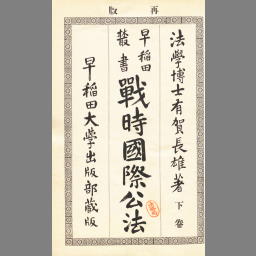 再版
法學博士有賀長雄著 下卷
早稲田叢書
戰時國際公法
早稲田大學出版部蔵版